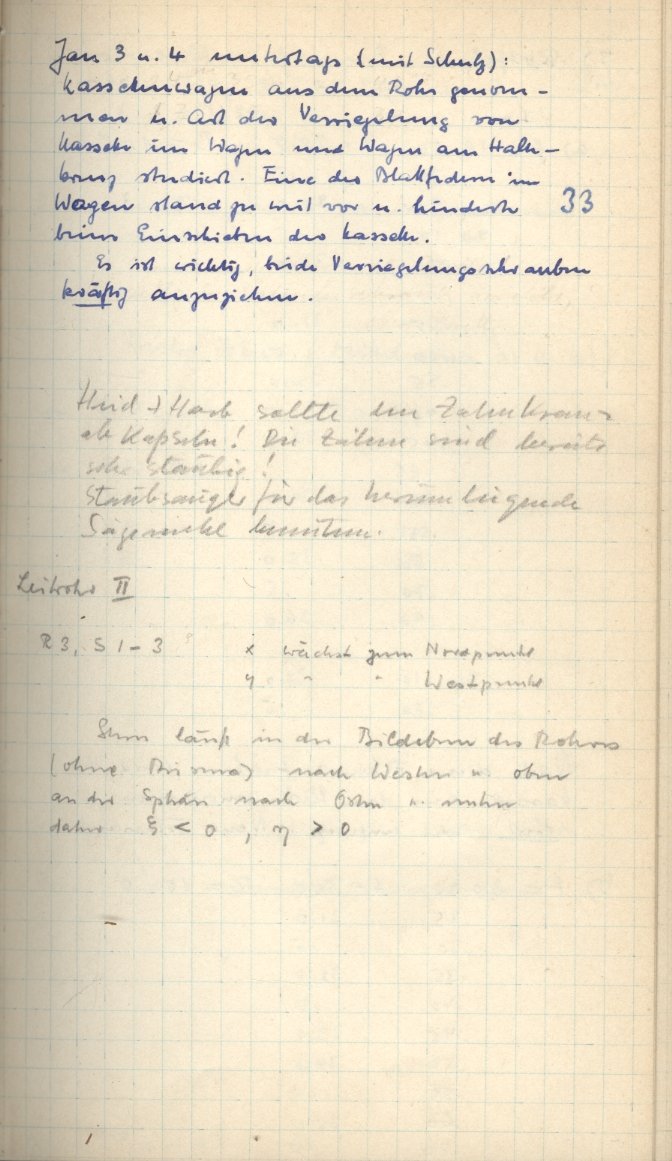 Jan 3 u. 4 untertags (mit Schulz):
Kassettenwagen aus dem Rohr genom-
men u. Art der Verriegelung von
Kassette im Wagen und Wagen am Halte-
kranz studiert. Eine der Blattfedern im
Wagen stand zu weit vor u. hinderte
33
beim Einschieben der Kassette.
Es ist wichtig, beide Verriegelungsschrauben
kräftig anzuziehen.
sollte den Zahnkranz
abkapseln! Die Zähne sind bereits
sehr staubig!
Staubsauger für das herumliegende
Sägemehl benutzen.
Leitrohr II
R 3, S 1-3 x wächst zum Nordpunkte
y " " Westpunkte
Stern läuft in der Bildebene des Rohres
(ohne Prisma) nach Westen u. oben
an der Sphäre nach Osten u. unten
daher ξ < 0 , η > 0